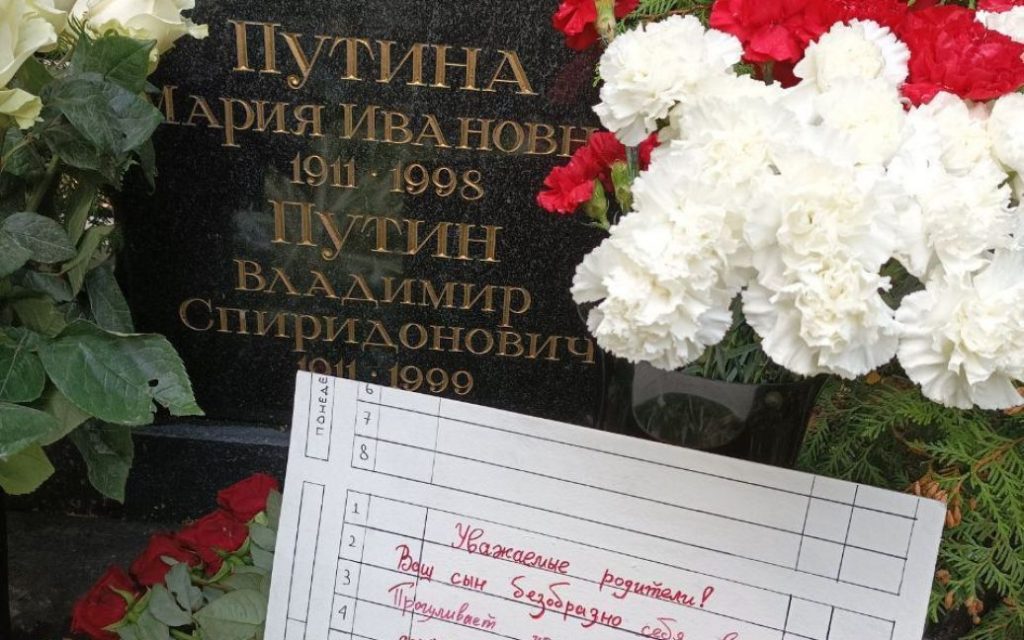 ПУТИНА
МАРИЯ ИВАНОВН
1911 · 1998
ПУТИН
ВЛАДИМИР
СПИРИДОНОВИЧ
1911 · 1999
ПОНЕДЕ
6
7
8
1
2 Уважаемые родители!
3 Ваш сын безобразно себя в
4 Прогуливает